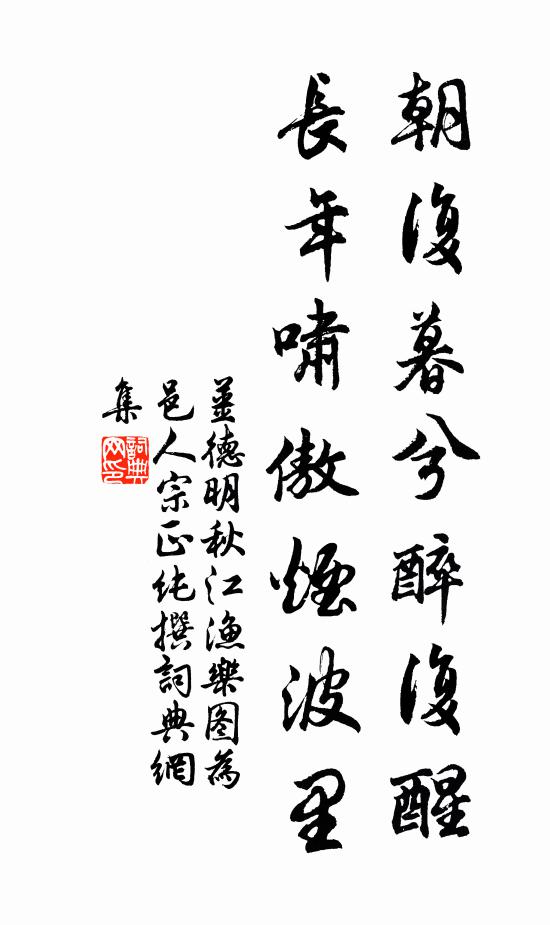 朝復暮兮醉復醒
長年嘯傲煙波里
姜德明秋江漁樂图為
邑人宗正純撰詞典網
集
詞典
网印